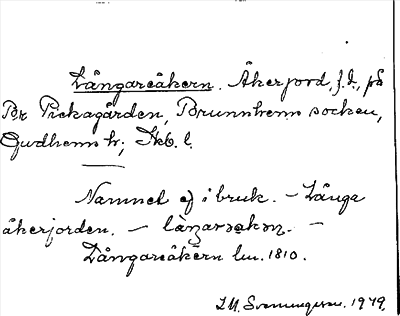 Långareåkern. Åkerjord, f.d., på
Br Pickagården, Brunnhems socken,
Gudhems hr; Skb. l.
Namnet ej i bruk. – Långa
åkerjorden. –
Långareåkern lm. 1810.
I.M. Svenungsson. 1949.